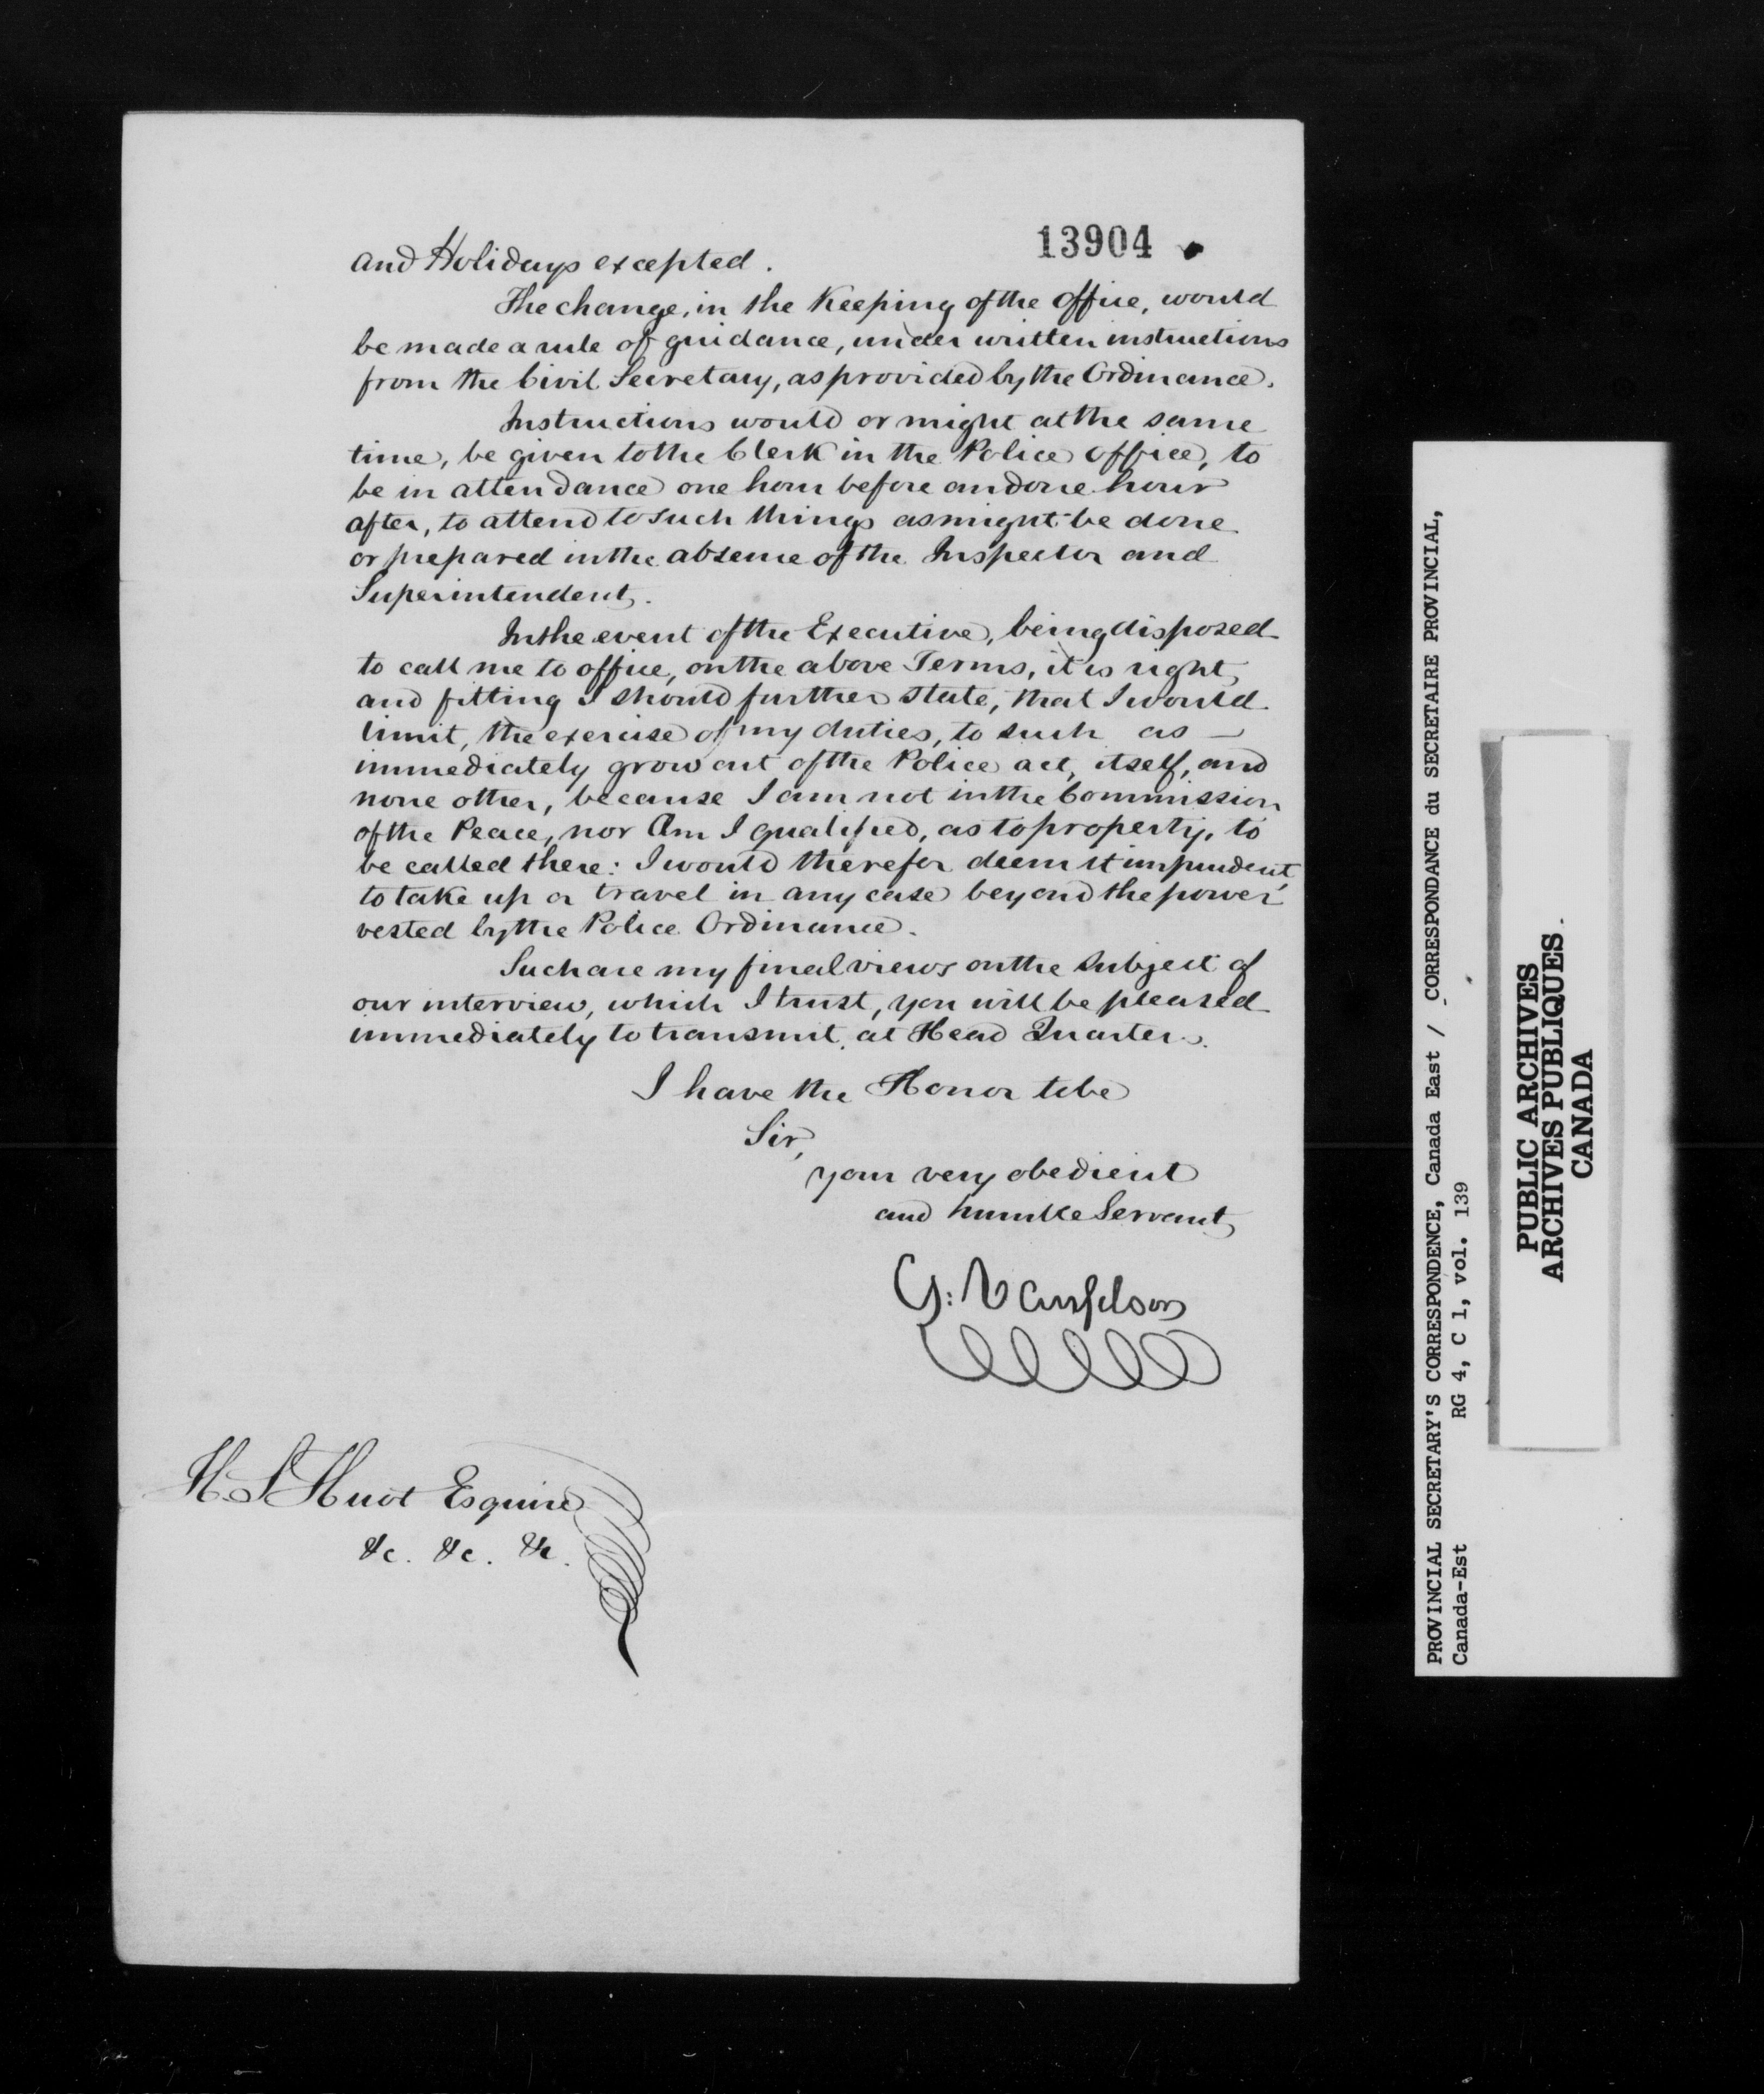 13904
and Holidays excepted.
The change, in the Keeping of the office, would
be made a rule of guidance, under written instructions
from the Civil Secretary, as provided by the Ordinance.
Instructions would or might at the same
time, be given to the Clerk in the Police office, to
be in attendance one hour before and one hour
after, to attend to such things as might be done
or prepared in the absence of the Inspector and
Superintendent.
In the event of the Executive, being disposed
to call me to office, on the above Terms, it is right
and fitting I should further state, that I would
limit, the exercise of my duties, to such as —
immediately grow out of the Police act, itself, and
none other, because I am not in the Commission
of the Peace, nor Am I qualified, as to property, to
be called there: I would therefor deem it imprudent
to take up or travel in any case beyond the power
vested by the Police Ordinance.
Such are my final views on the Subject of
our interview, which I trust, you will be pleased
immediately to transmit, at Head Quarters.
I have the Honor to be
Sir,
your very obedient
and humble Servant
G: Vanfelson
H. S. Huot Esquire
&c. &c. &c.
PROVINCIAL SECRETARY'S CORRESPONDENCE, Canada East / CORRESPONDANCE du SECRETAIRE PROVINCIAL,
Canada-Est RG 4, C 1, vol. 139
PUBLIC ARCHIVES
ARCHIVES PUBLIQUES
CANADA